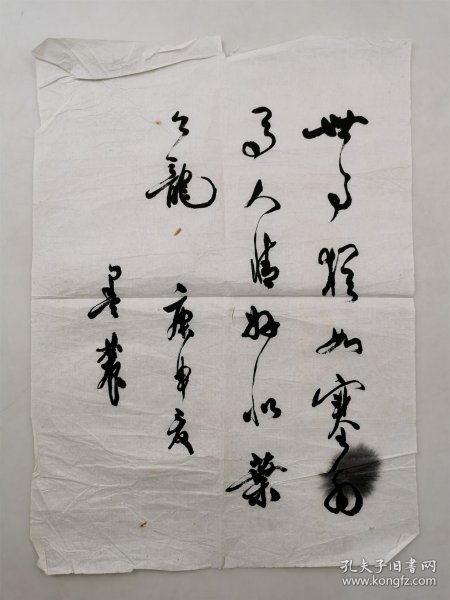 世事猶如塞翁
馬人情好似葉
公龍 庚申夏
孔夫子旧书网
www.kongfz.com